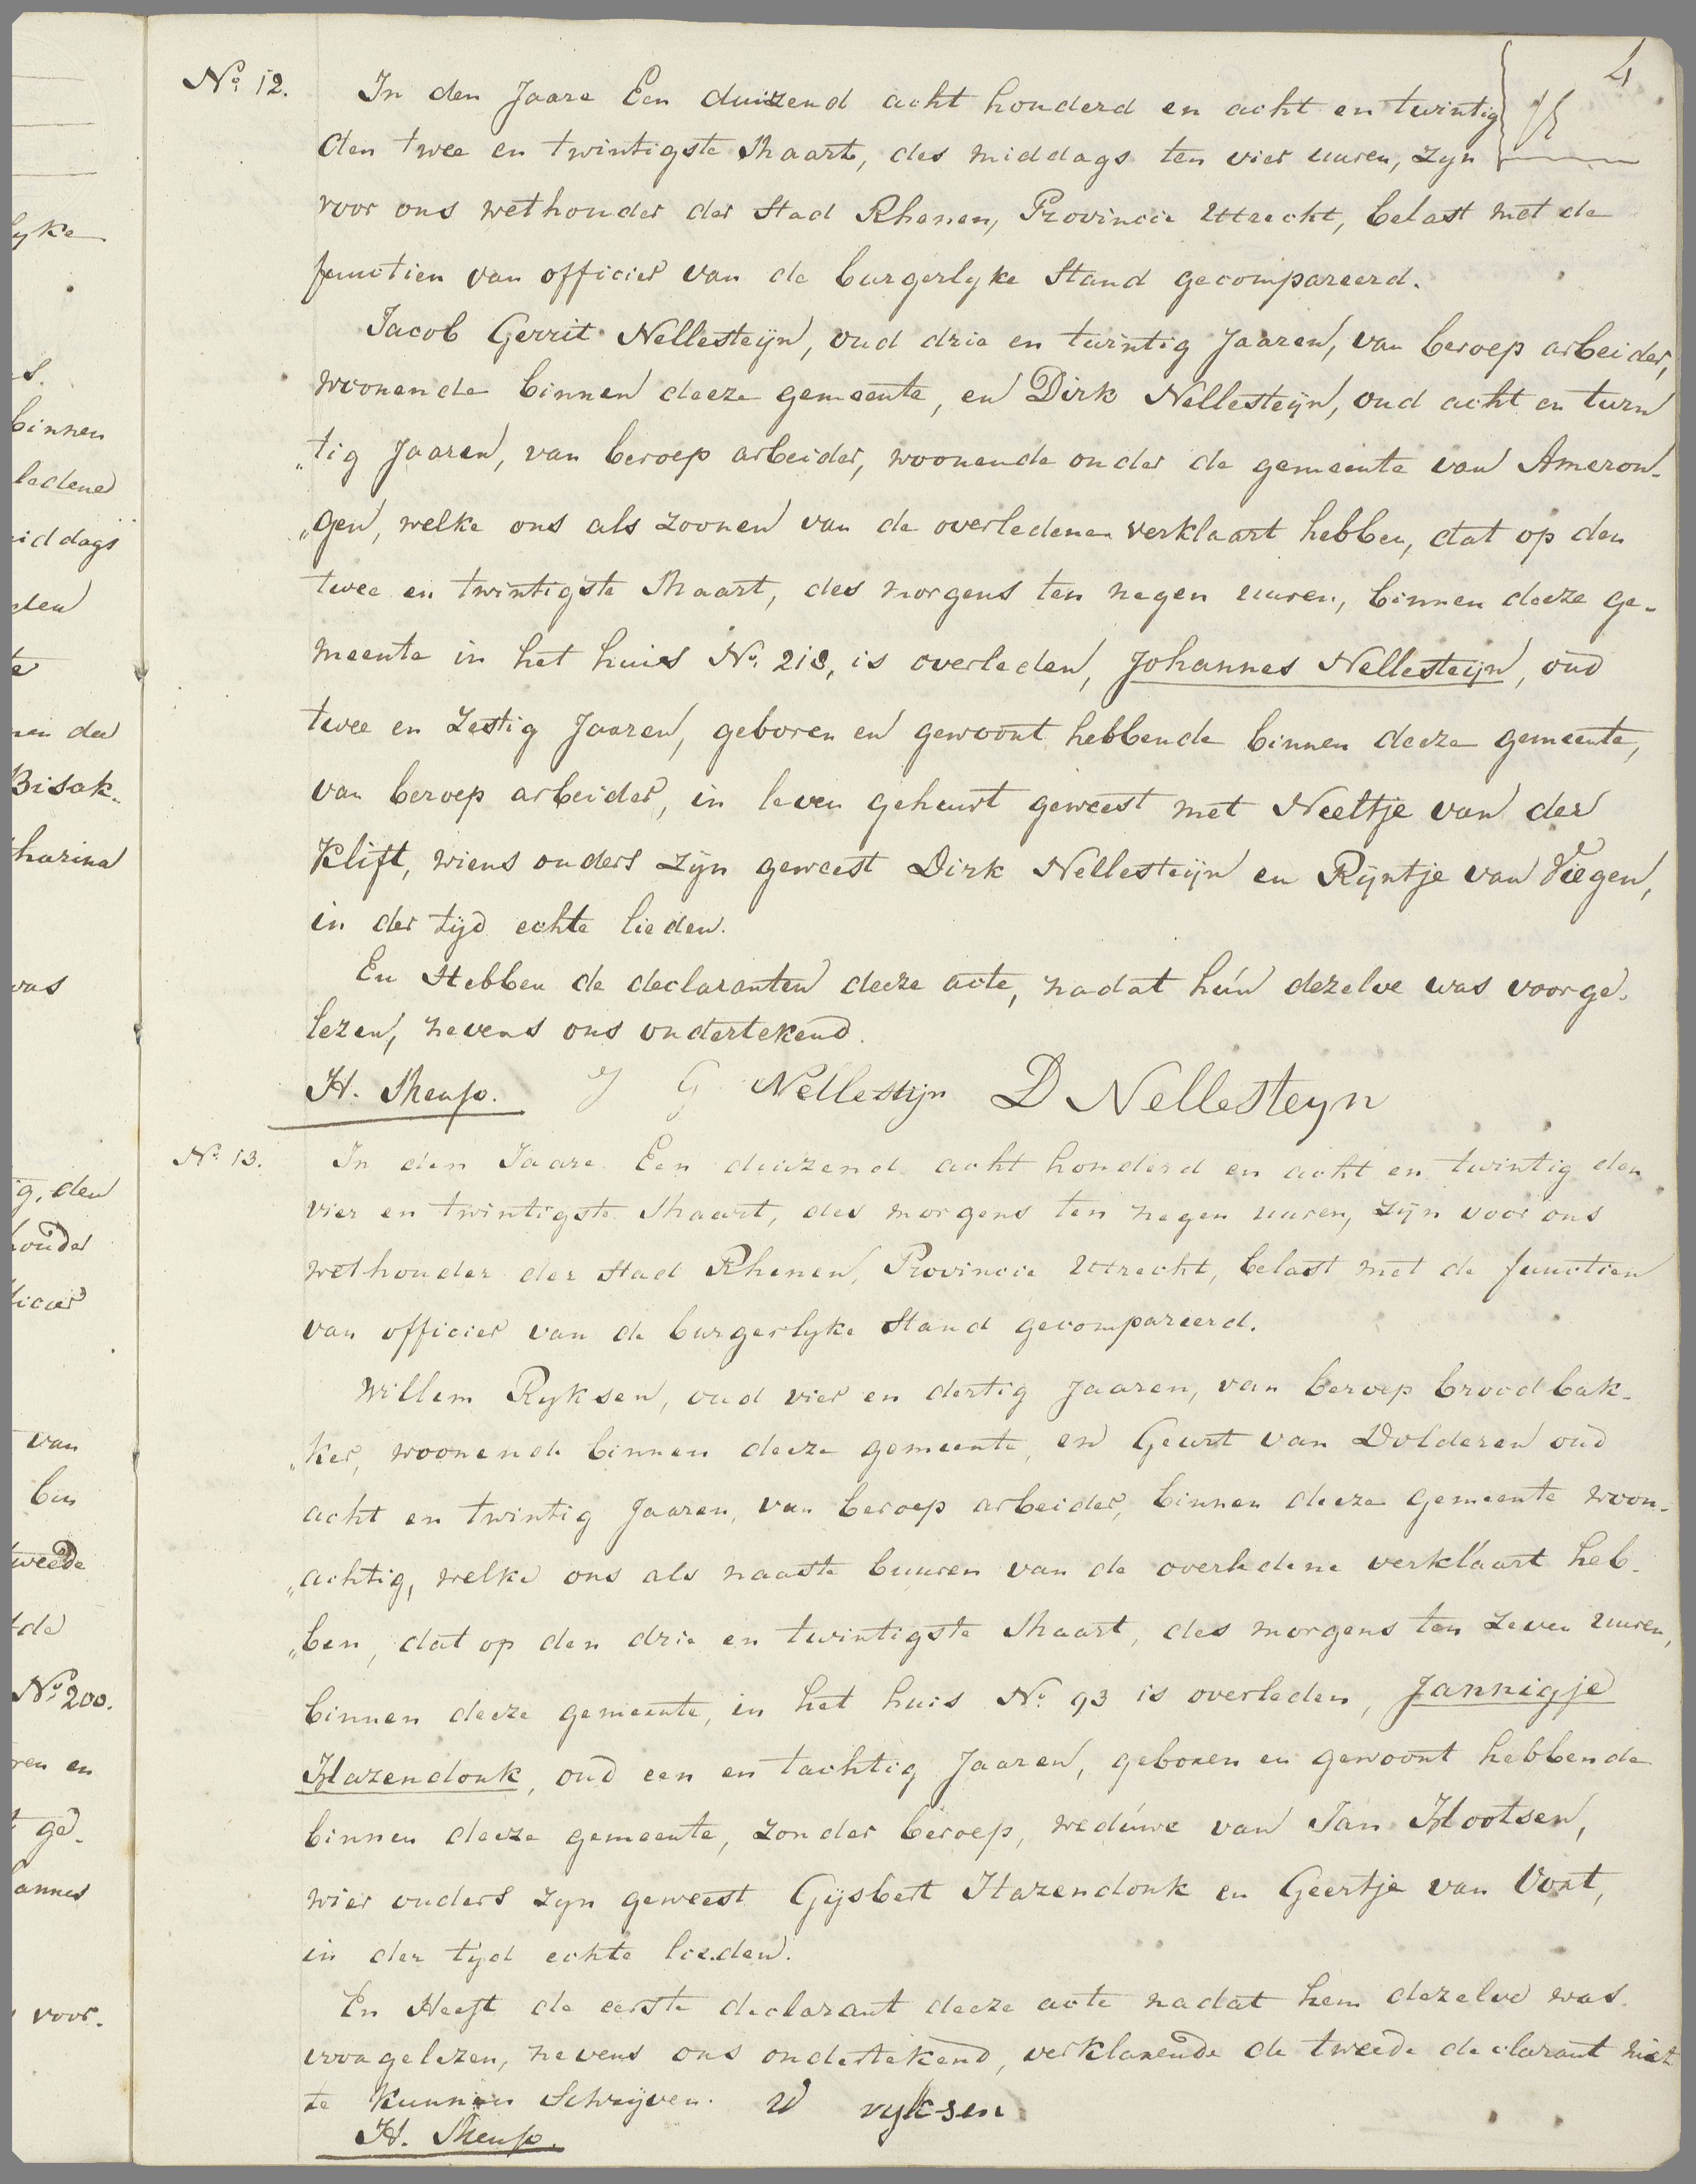 4
No 12. In den Jaare Een duizend acht honderd en acht en twintig
den twee en twintigste Maart, des middags ten vier uuren, zyn
voor ons wethouder der Stad Rhenen, Provincie Utrecht, belast met de
functien van officier van de burgerlyke Stand gecompareerd.
Jacob Gerrit Nellesteijn, oud drie en twintig Jaaren, van beroep arbeider,
woonende binnen deeze gemeente, en Dirk Nellesteijn, oud acht en twin
„tig Jaaren, van beroep arbeider, woonende onder de gemeente van Ameron-
„gen, welke ons als zoonen van de overledenen verklaart hebben, dat op den
twee en twintigste Maart, des morgens ten negen uuren, binnen deeze ge-
meente in het huis No. 218, is overleden, Johannes Nellesteijn, oud
twee en Zestig Jaaren, geboren en gewoont hebbende binnen deeze gemeente,
van beroep arbeider, in leven gehuwt geweest met Neeltje van der
Klift, wiens ouders zijn geweest Dirk Nellesteijn en Rijntje van Viegen,
in der tijd echte lieden.
En Hebben de declaranten deeze acte, nadat hun dezelve was voorge-
lezen, nevens ons ondertekend.
H. Menso. J G Nellestijn D Nellesteyn
No 13. In den Jaare Een duizend acht honderd en acht en twintig den
vier en twintigste Maart, des morgens ten negen uuren, zijn voor ons
wethouder der Stad Rhenen, Provincie Utrecht, belast met de functien
van officier van de burgerlyke Stand gecompareerd.
Willem Ryksen, oud vier en dertig Jaaren, van beroep broodbak-
„ker, woonende binnen deeze gemeente, en Geurt van Dolderen oud
acht en twintig Jaaren, van beroep arbeider, binnen deeze gemeente woon-
„achtig, welke ons als naaste buuren van de overledene verklaart heb-
„ben, dat op den drie en twintigste Maart, des morgens ten zeven uuren,
binnen deeze gemeente, in het huis No. 93 is overleden, Jannigje
Hazendonk, oud een en tachtig Jaaren, geboren en gewoont hebbende
binnen deeze gemeente, zonder beroep, weduwe van Jan Hootsen,
wier ouders zyn geweest Gijsbert Hazendonk en Geertje van Voat,
in der tyd echte lieden.
En Heeft de eerste declarant deeze acte nadat hem dezelve was
voorgelezen, nevens ons ondertekend, verklarende de tweede declarant niet
te kunnen Schrijven. W ryksen
H. Menso.
lyke
s.
binnen
ledene
iddags
den
te
nen de
Bisok-
tharina
was
ig, den
houder
ficier
van
bin
tweede
tde
No 200.
ren en
t ge-
annes
voor.